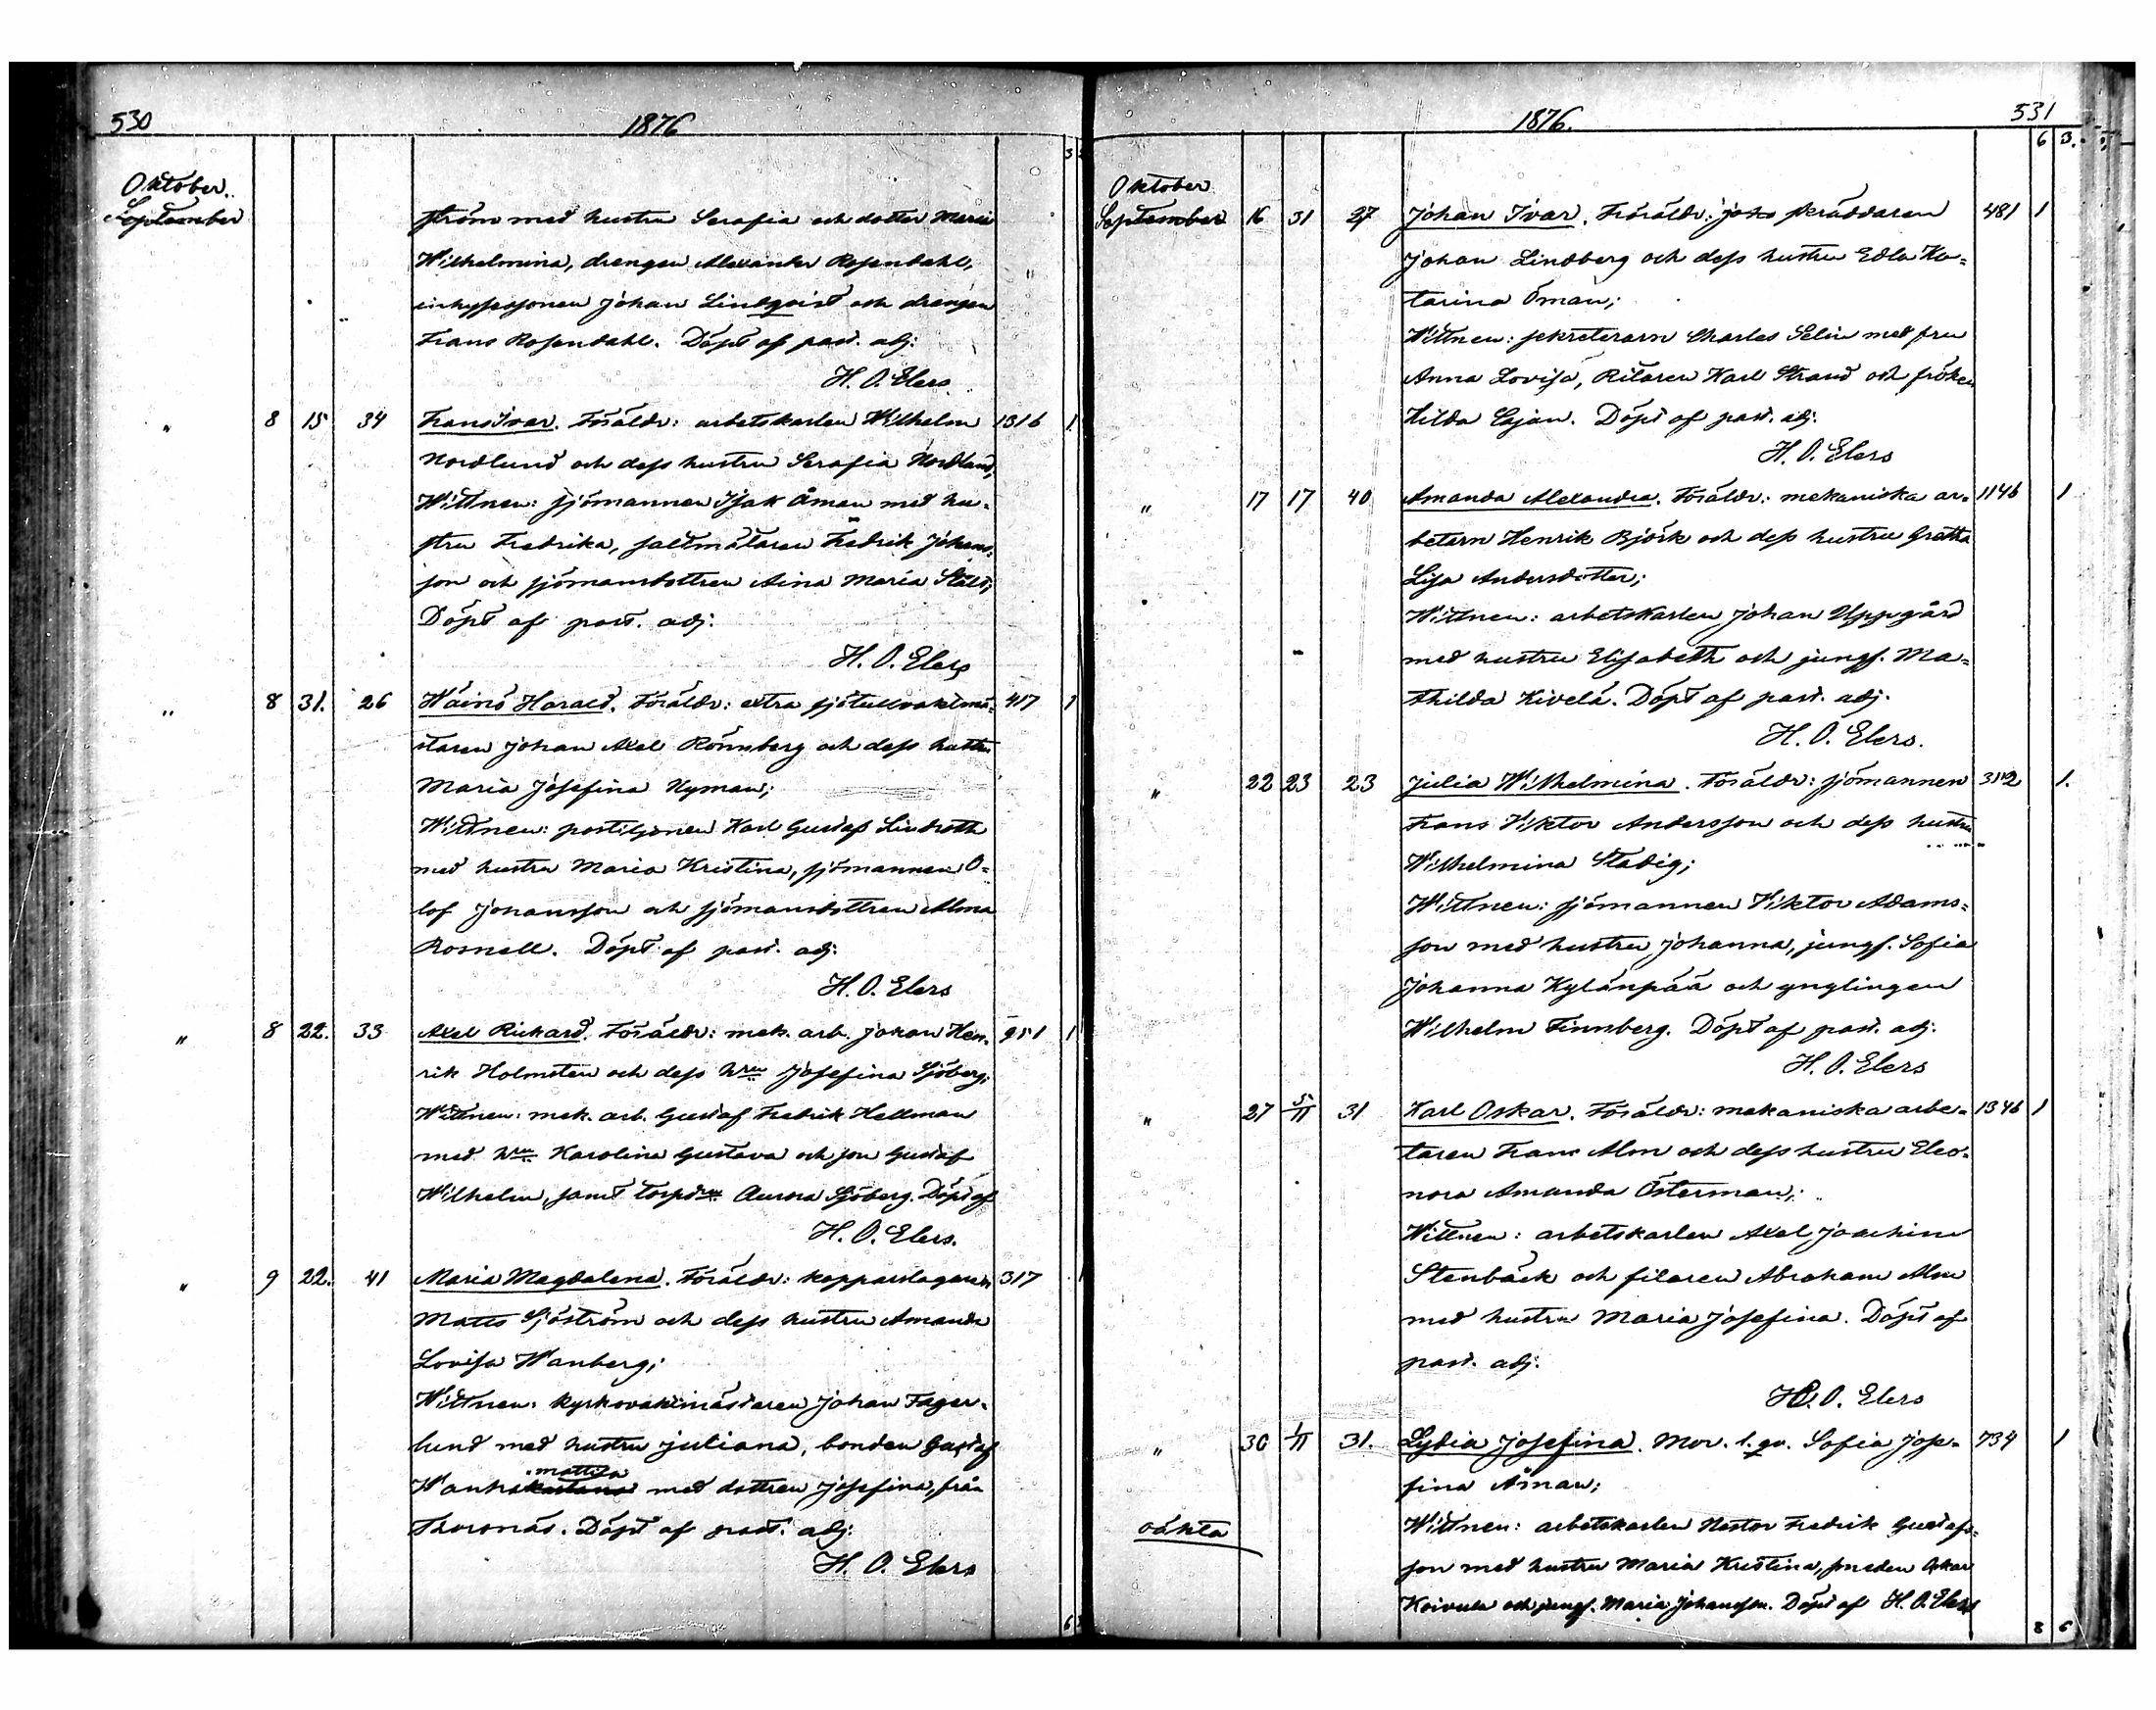 530
1876
3
Oktober.
September
ström med hustru Serafia och dotter Maria
Wilhelmina, drengen Alexander Rosendahl,
inhyssesonen Johan Lindqvist och drengen
Frans Rosendahl. Döpt af past. adj:
H. O. Elers
" 8 15 34 Frans Ivar. Föräldr: arbetskarlen Wilhelm 1316 1
Nordlund och dess hustru Serafia Nordlund;
Wittnen: sjömannen Isak Åman med hu-
stru Fredrika, saltmätaren Fredrik Johans-
son och sjömansdottren Aina Maria Ståld;
Döpt af past. adj.
H. O. Elers
" 8 31. 26 Wäinö Harald. Föräldr: extra sjötullvaktmä- 417 1
staren Johan Axel Rönnberg och dess hustru
Maria Josefina Nyman;
Wittnen: postiljonen Karl Gustaf Lindroth
med hustru Maria Kristina, sjömannen O-
lof Johansson och sjömansdottren Alma
Rosnell. Döpt af past. adj.
H. O. Elers
" 8 22. 33 Axel Rickard. Föräldr: mek. arb. Johan Hen- 951 1
rik Holmsten och dess hru Josefina Sjöberg;
Wittnen: mek. arb. Gustaf Fredrik Hellman
med hru Karolina Gustava och son Gustaf
Wilhelm, samt Aurora Sjöberg. Döpt af
H. O. Elers.
" 9 22. 41 Maria Magdalena. Föräldr: kopparslagaren 317 1
Matts Sjöström och dess hustru Amanda
Lovisa Wanberg;
Wittnen: kyrkovaktmästaren Johan Fager-
lund med hustru Juliana, bonden Gustaf
mattila
Wanha med dottren Josefina, från
Thorsnäs. Döpt af past. adj.
H. O. Elers
6
1876.
531
6 3.
Oktober
September 16 31 27 Johan Ivar. Föräldr: skräddaren 481 1
Johan Lindberg och dess hustru Edla Ka-
tarina Öman;
Wittnen: sekreterarn Charles Selin med fru
Anna Lovisa, Ritaren Karl Strand och fröken
Hilda Cajan. Döpt af past. adj.
H. O. Elers
" 17 17 40 Amanda Alexandra. Föräldr: mekaniska ar- 1146 1
betarn Henrik Björk och dess hustru Gretha
Lisa Andersdotter;
Wittnen: arbetskarlen Johan Uppgård
med hustru Elisabeth och jungf. Ma-
thilda Kivelä. Döpt af past. adj.
H. O. Elers.
" 22 23 23 Julia Wilhelmina. Föräldr: sjömannen 312 1.
Frans Viktor Andersson och dess hustru
Wilhelmina Stadig;
Wittnen: sjömannen Viktor Adams-
son med hustru Johanna, jungf. Sofia
Johanna Kylänpää och ynglingen
Wilhelm Finnberg. Döpt af past. adj.
H. O. Elers
" 27 5/11 31 Karl Oskar. Föräldr: mekaniska arbe- 1346 1
taren Frans Alm och dess hustru Eleo-
nora Amanda Österman;
Wittnen: arbetskarlen Axel Joachim
Stenbäck och filaren Abraham Alm
med hustru Maria Josefina. Döpt af
past. adj.
H. O. Elers
" 30 1/11 31. Lydia Josefina. Mor. l. qv. Sofia Jose- 734 1
fina Åman;
oäkta Wittnen: arbetskarlen Nestor Fredrik Gustafs-
son med hustru Maria Kristina, smeden Oskar
Koivula och jungf. Maria Johansson. Döpt af H. O. Elers
8 6